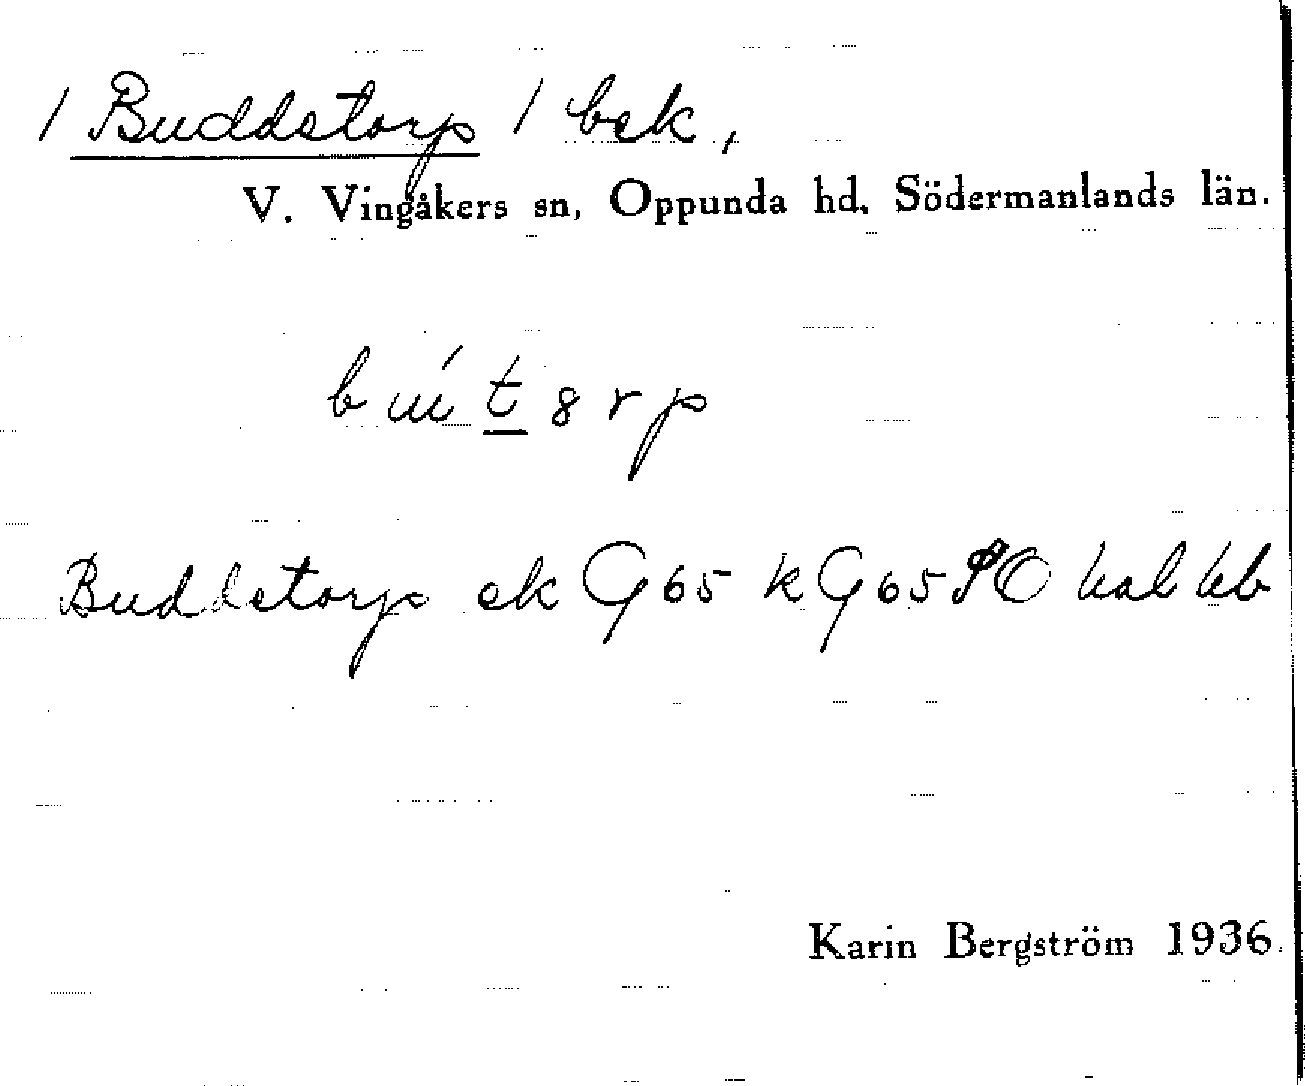 / Buddetorp / bek,
V. Vingåkers sn, Oppunda hd, Södermanlands län.
Buddetorp ek G 65 k G 65 PO hal hb
Karin Bergström 1936.